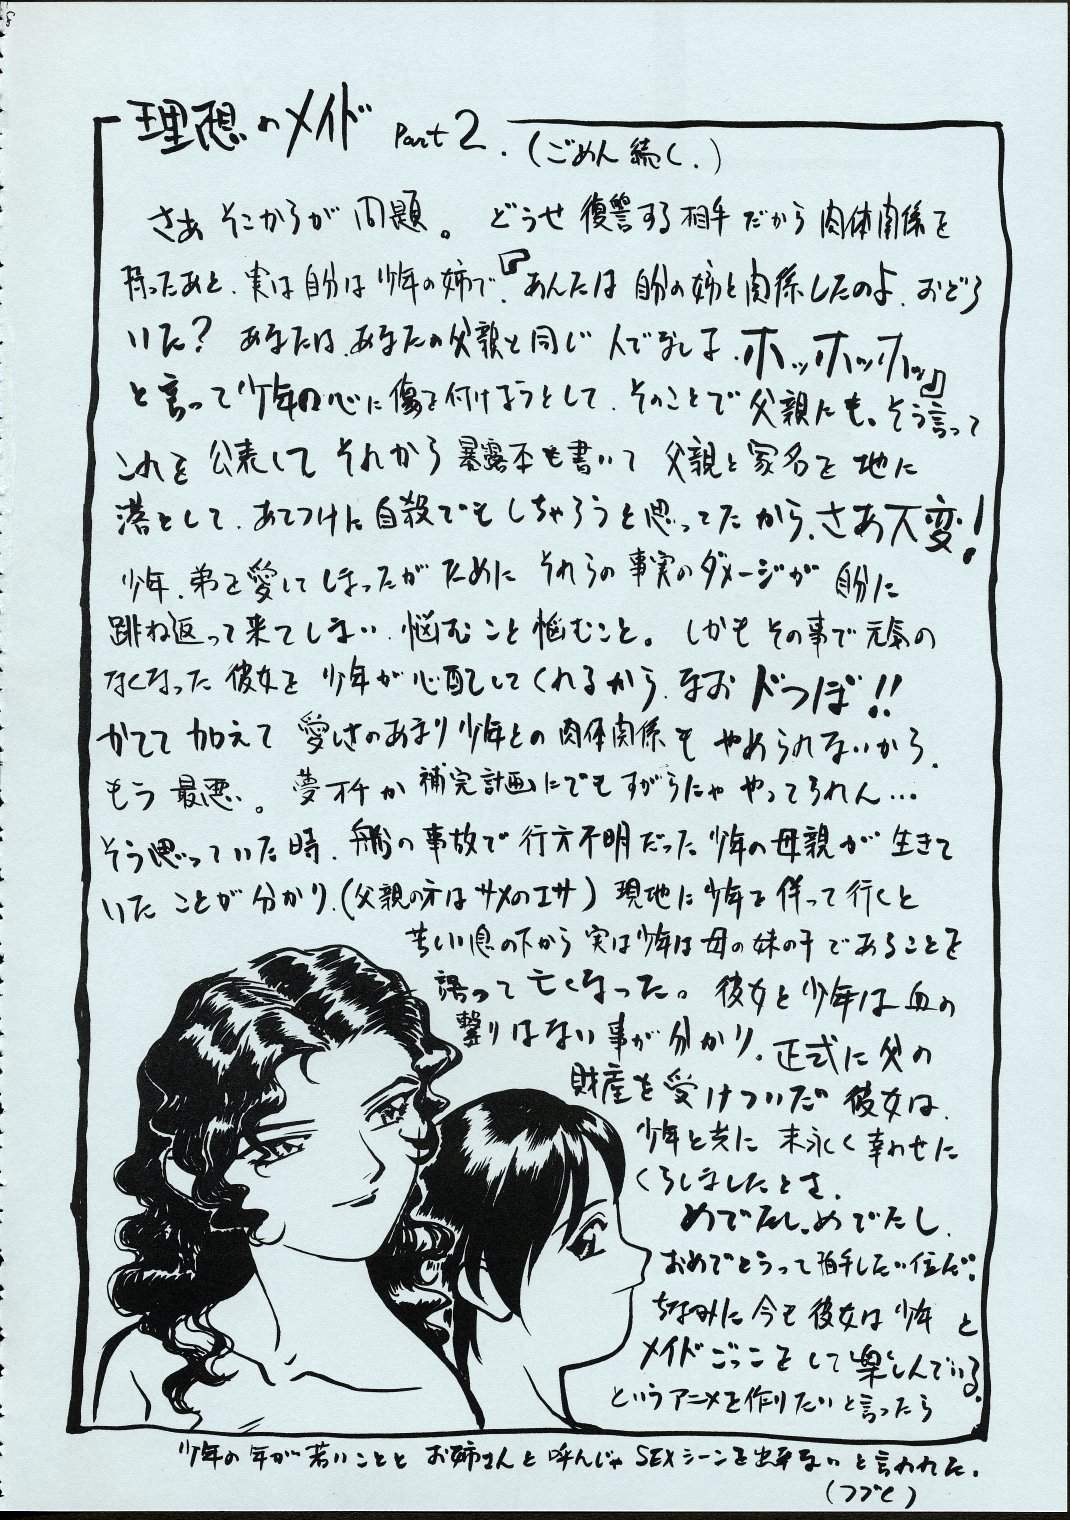 理想のメイド Part 2. (ごめん続く.)
さあ そこからが 問題。 どうせ 復讐する相手だから 肉体関係を
持ったあと、実は自分は少年の姉で、『あんたは 自分の姉と関係したのよ、おどろ
いた? あなたは、あなたの父親と同じ 人でなしよ、ホッホッホッ』
と言って少年の心に傷を付けようとして、そのことで父親にも。そう言って
これを 公表して それから 暴露本も書いて 父親と家名を 地に
落として、あてつけに自殺でもしちゃろうと思ってたから、さあ大変!
少年、弟を愛してしまったがために それらの事実のダメージが 自分に
跳ね返って来てしまい、悩むこと悩むこと。 しかも その事で元気の
なくなった 彼女を 少年が心配してくれるから、なお ドつぼ!!
かてて加えて 愛しさのあまり少年との肉体関係も やめられないから、
もう 最悪。 夢オチか 補完計画にでもすがらにゃ やってられん…
そう思っていた時、船の事故で行方不明だった少年の母親が 生きて
いた ことが分かり、(父親の方はサメのエサ) 現地に少年を伴って行くと
苦しい息の下から 実は少年は母の妹の子であることを
語って 亡くなった。 彼女と少年は血の
繋りはない事が分かり、正式に父の
財産を受けついだ 彼女は、
少年と共に 末永く幸わせに
くらしましたとさ。
めでたし、めでたし、
おめでとうって拍手したい位だ。
ちなみに今も彼女は少年と
メイドごっこをして楽しんでいる。
というアニメを作りたいと言ったら
少年の年が若いことと お姉さんと呼んじゃ SEXシーンを出来ないと言われた。